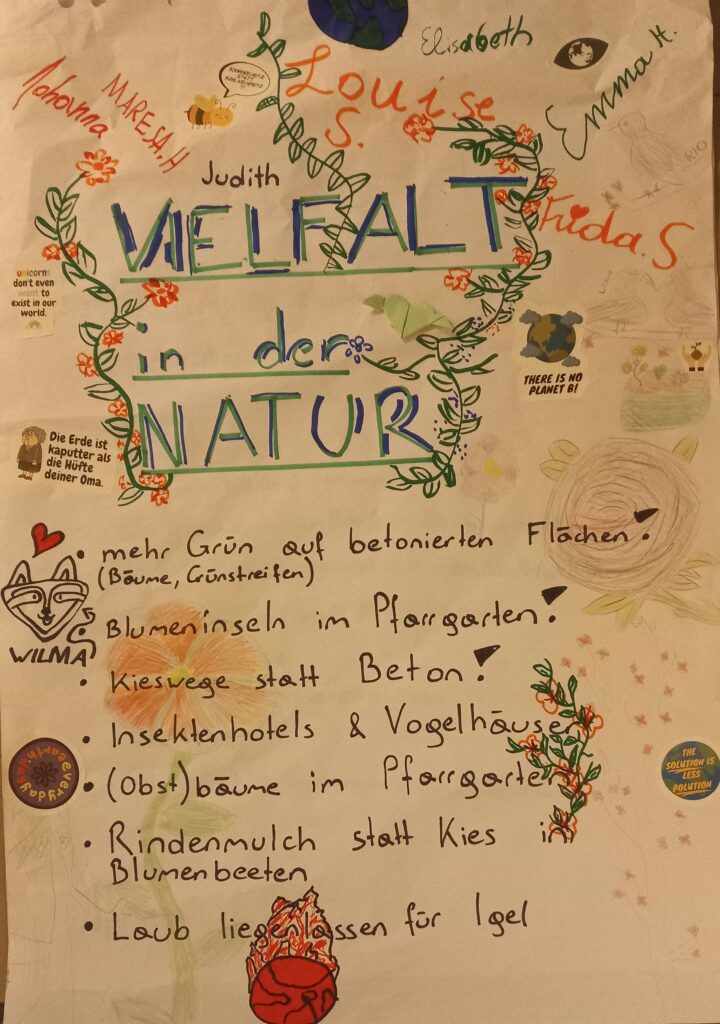 Elisabeth
Johanna
MARESA.H
BIENENSCHUTZ
STATT
KOHLESCHMUTZ
Louise
S.
Emma H.
RIO
Judith
VIELFALT
Frida.S
in der
NATUR
unicorns
don't even
want to
exist in our
world.
THERE IS NO
PLANET B!
Die Erde ist
kaputter als
die Hüfte
deiner Oma.
• mehr Grün auf betonierten Flächen!
(Bäume, Grünstreifen)
WILMA
• Blumeninseln im Pfarrgarten!
• Kieswege statt Beton!
• Insektenhotels & Vogelhäuser
• (Obst)bäume im Pfarrgarten
everyday
earthday
THE
SOLUTION IS
LESS
POLUTION
• Rindenmulch statt Kies in
Blumenbeeten
• Laub liegenlassen für Igel